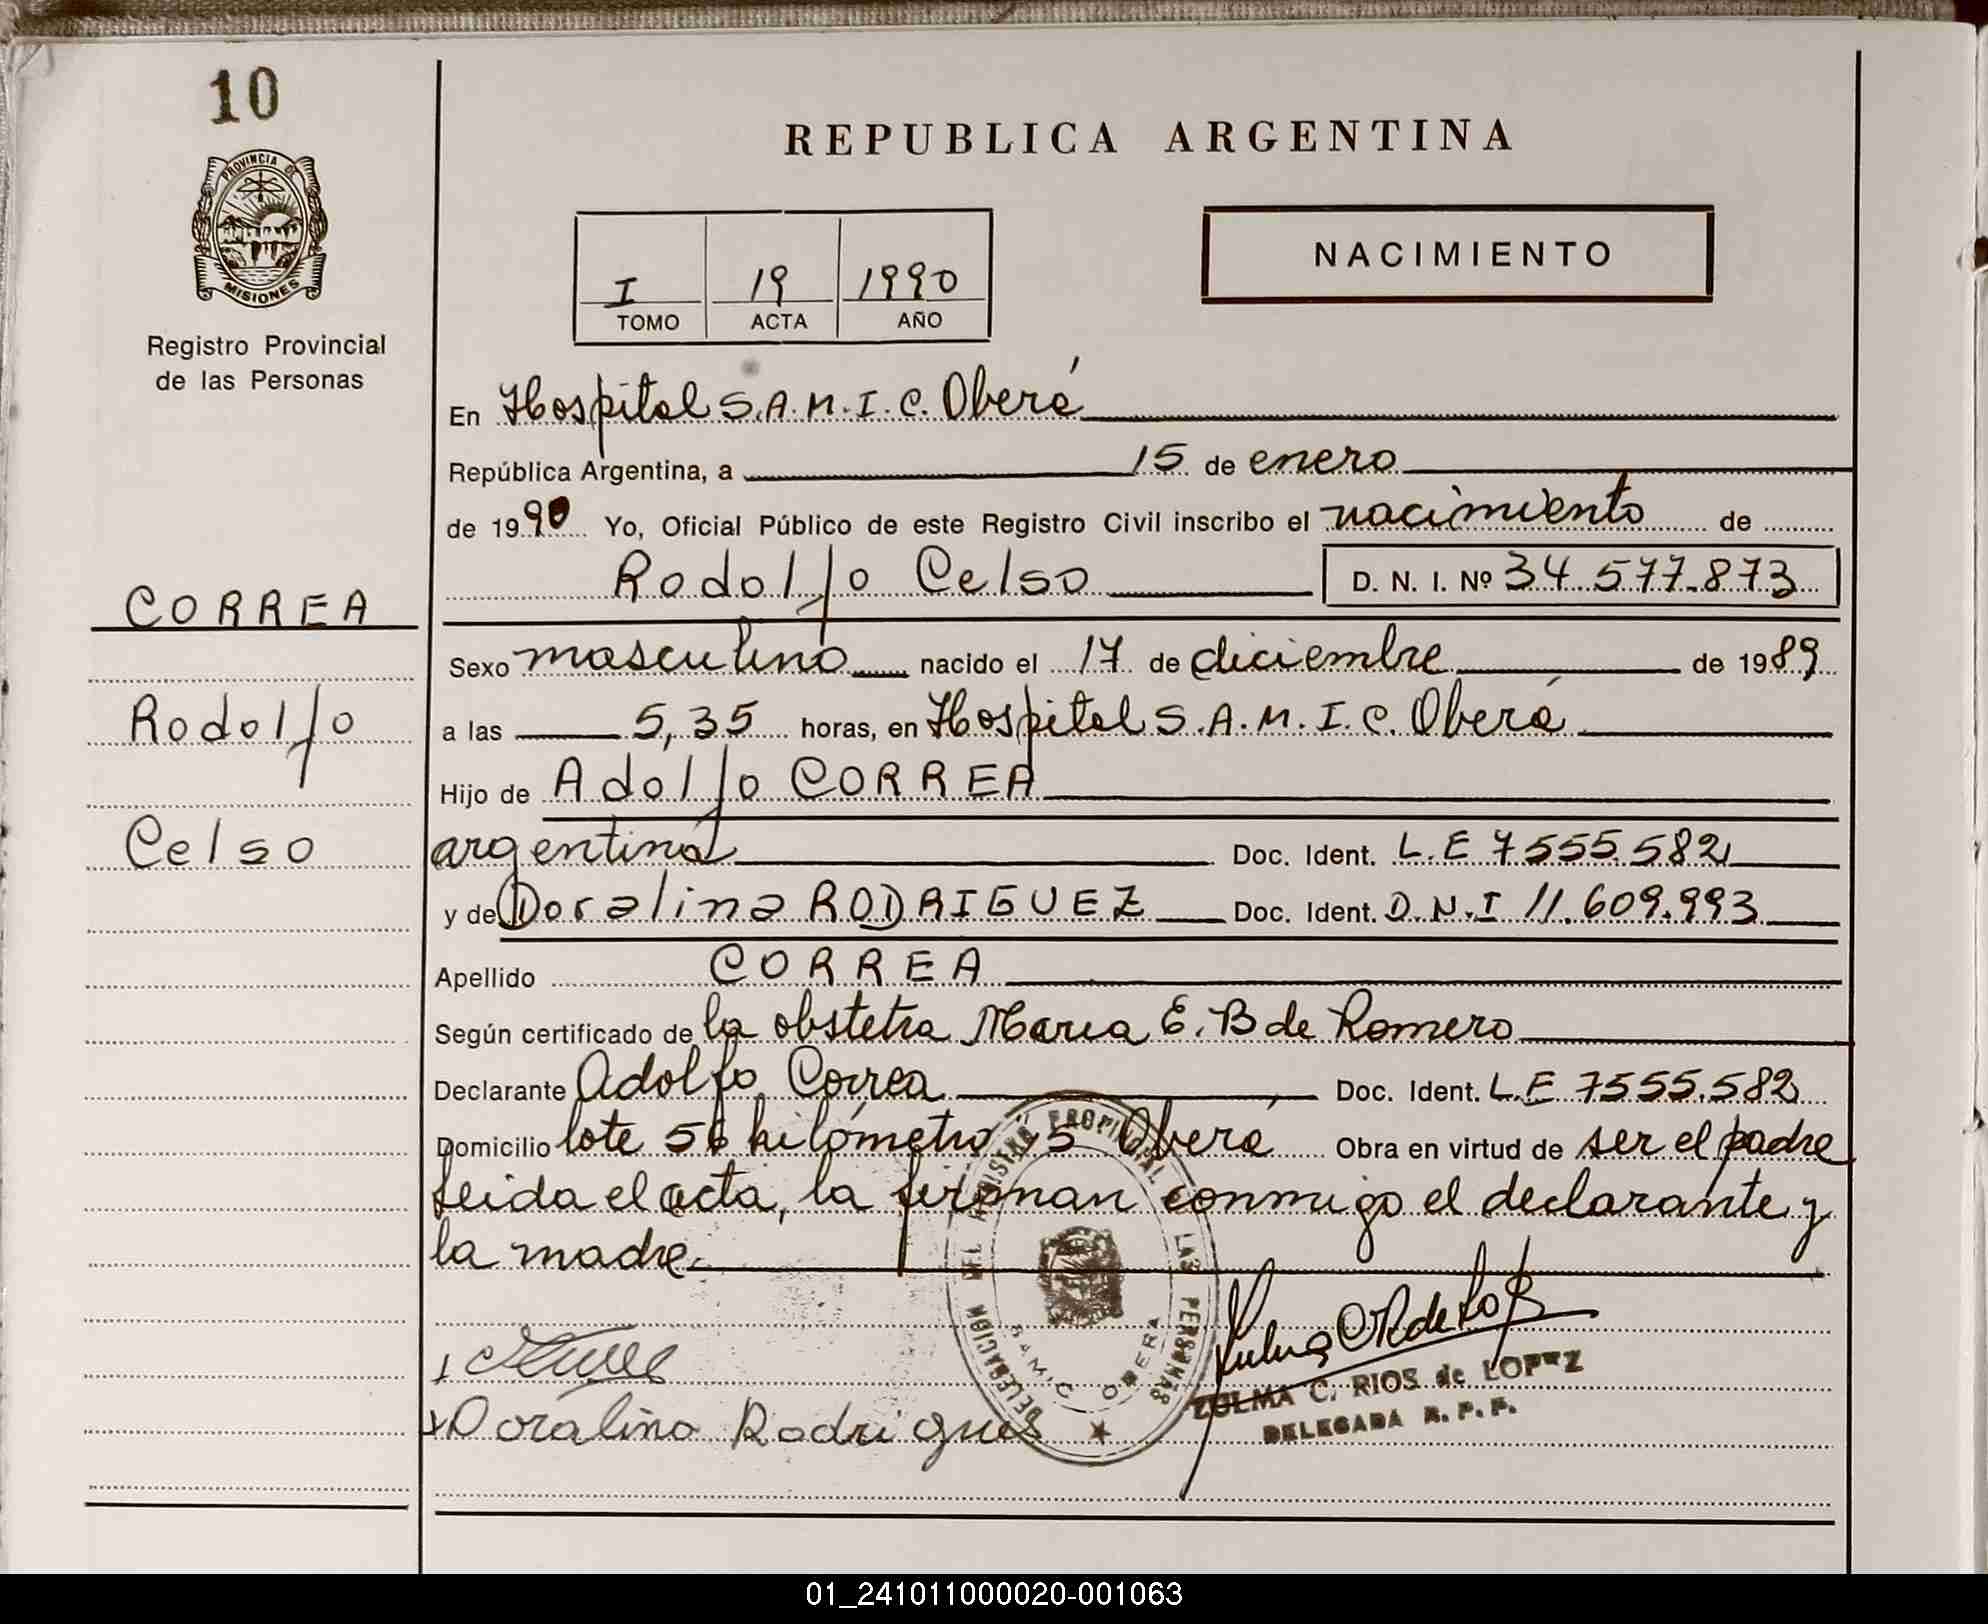 10
PROVINCIA DE
MISIONES
Registro Provincial
de las Personas
CORREA
Rodolfo
Celso
REPUBLICA ARGENTINA
I 19 1990
TOMO ACTA AÑO
NACIMIENTO
En Hospital S.A.M.I.C. Oberá
República Argentina, a 15 de enero
de 1990 Yo, Oficial Público de este Registro Civil inscribo el nacimiento de
Rodolfo Celso D. N. I. Nº 34.577.873
Sexo masculino nacido el 17 de diciembre de 1989
a las 5,35 horas, en Hospital S.A.M.I.C. Oberá
Hijo de Adolfo CORREA
argentina Doc. Ident. L.E 7555.582
y de Doralina RODRIGUEZ Doc. Ident. D.N.I 11.609.993
Apellido CORREA
Según certificado de la obstetra Maria E. B de Romero
Declarante Adolfo Correa Doc. Ident. L.E 7555.582
Domicilio lote 56 kilómetro 5 Oberá Obra en virtud de ser el padre
leida el acta, la firman conmigo el declarante y
la madre.
DELEGACION DEL REGISTRO PROVINCIAL DE LAS PERSONAS
SAMIC OBERA
Doralina Rodrigues
ZULMA C. RIOS de LOPEZ
DELEGADA R. P. P.
01_241011000020-001063